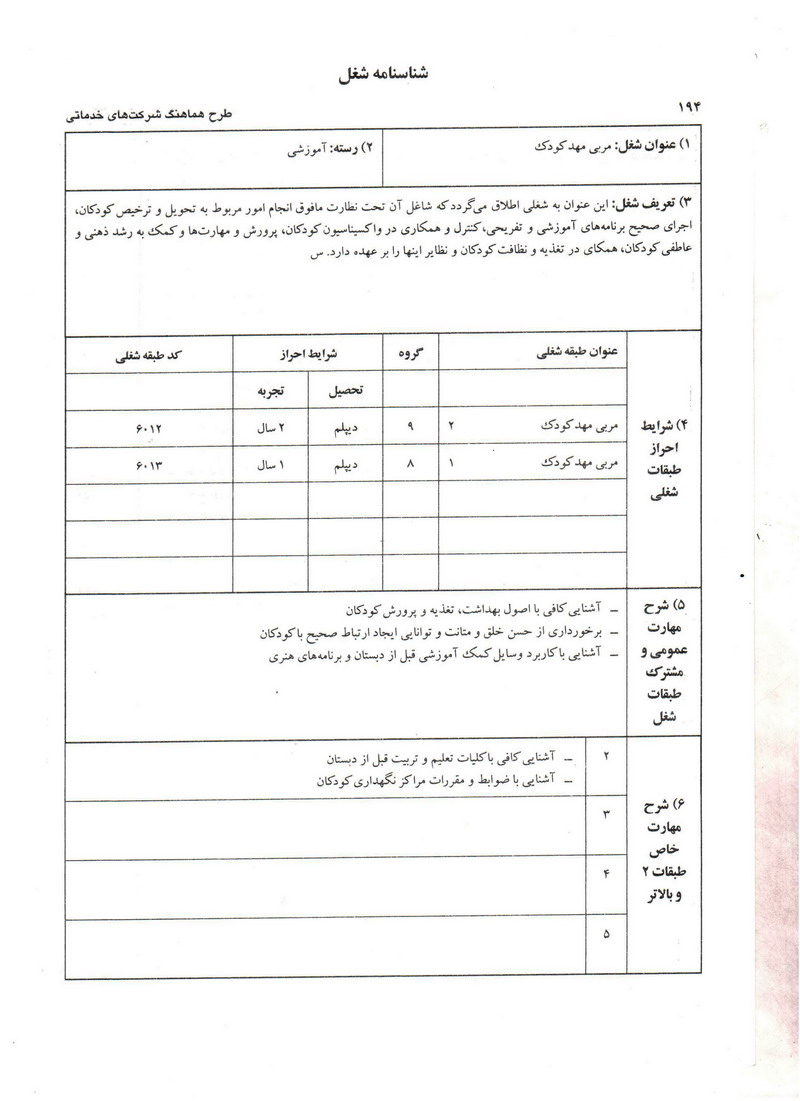 شناسنامه شغل
۱۹۴
طرح هماهنگ شرکت‌های خدماتی
۱) عنوان شغل: مربی مهد کودک
۲) رسته: آموزشی
۳) تعریف شغل: این عنوان به شغلی اطلاق می‌گردد که شاغل آن تحت نظارت مافوق انجام امور مربوط به تحویل و ترخیص کودکان،
اجرای صحیح برنامه‌های آموزشی و تفریحی، کنترل و همکاری در واکسیناسیون کودکان، پرورش و مهارت‌ها و کمک به رشد ذهنی و
عاطفی کودکان، همکای در تغذیه و نظافت کودکان و نظایر اینها را بر عهده دارد. س
۴) شرایط
احراز
طبقات
شغلی
عنوان طبقه شغلی گروه شرایط احراز کد طبقه شغلی
تحصیل تجربه
مربی مهد کودک ۲ ۹ دیپلم ۲ سال ۶۰۱۲
مربی مهد کودک ۱ ۸ دیپلم ۱ سال ۶۰۱۳
۵) شرح
مهارت
عمومی و
مشترک
طبقات
شغل
– آشنایی کافی با اصول بهداشت، تغذیه و پرورش کودکان
– برخورداری از حسن خلق و متانت و توانایی ایجاد ارتباط صحیح با کودکان
– آشنایی با کاربرد وسایل کمک آموزشی قبل از دبستان و برنامه‌های هنری
۶) شرح
مهارت
خاص
طبقات ۲
و بالاتر
۲
– آشنایی کافی با کلیات تعلیم و تربیت قبل از دبستان
– آشنایی با ضوابط و مقررات مراکز نگهداری کودکان
۳
۴
۵